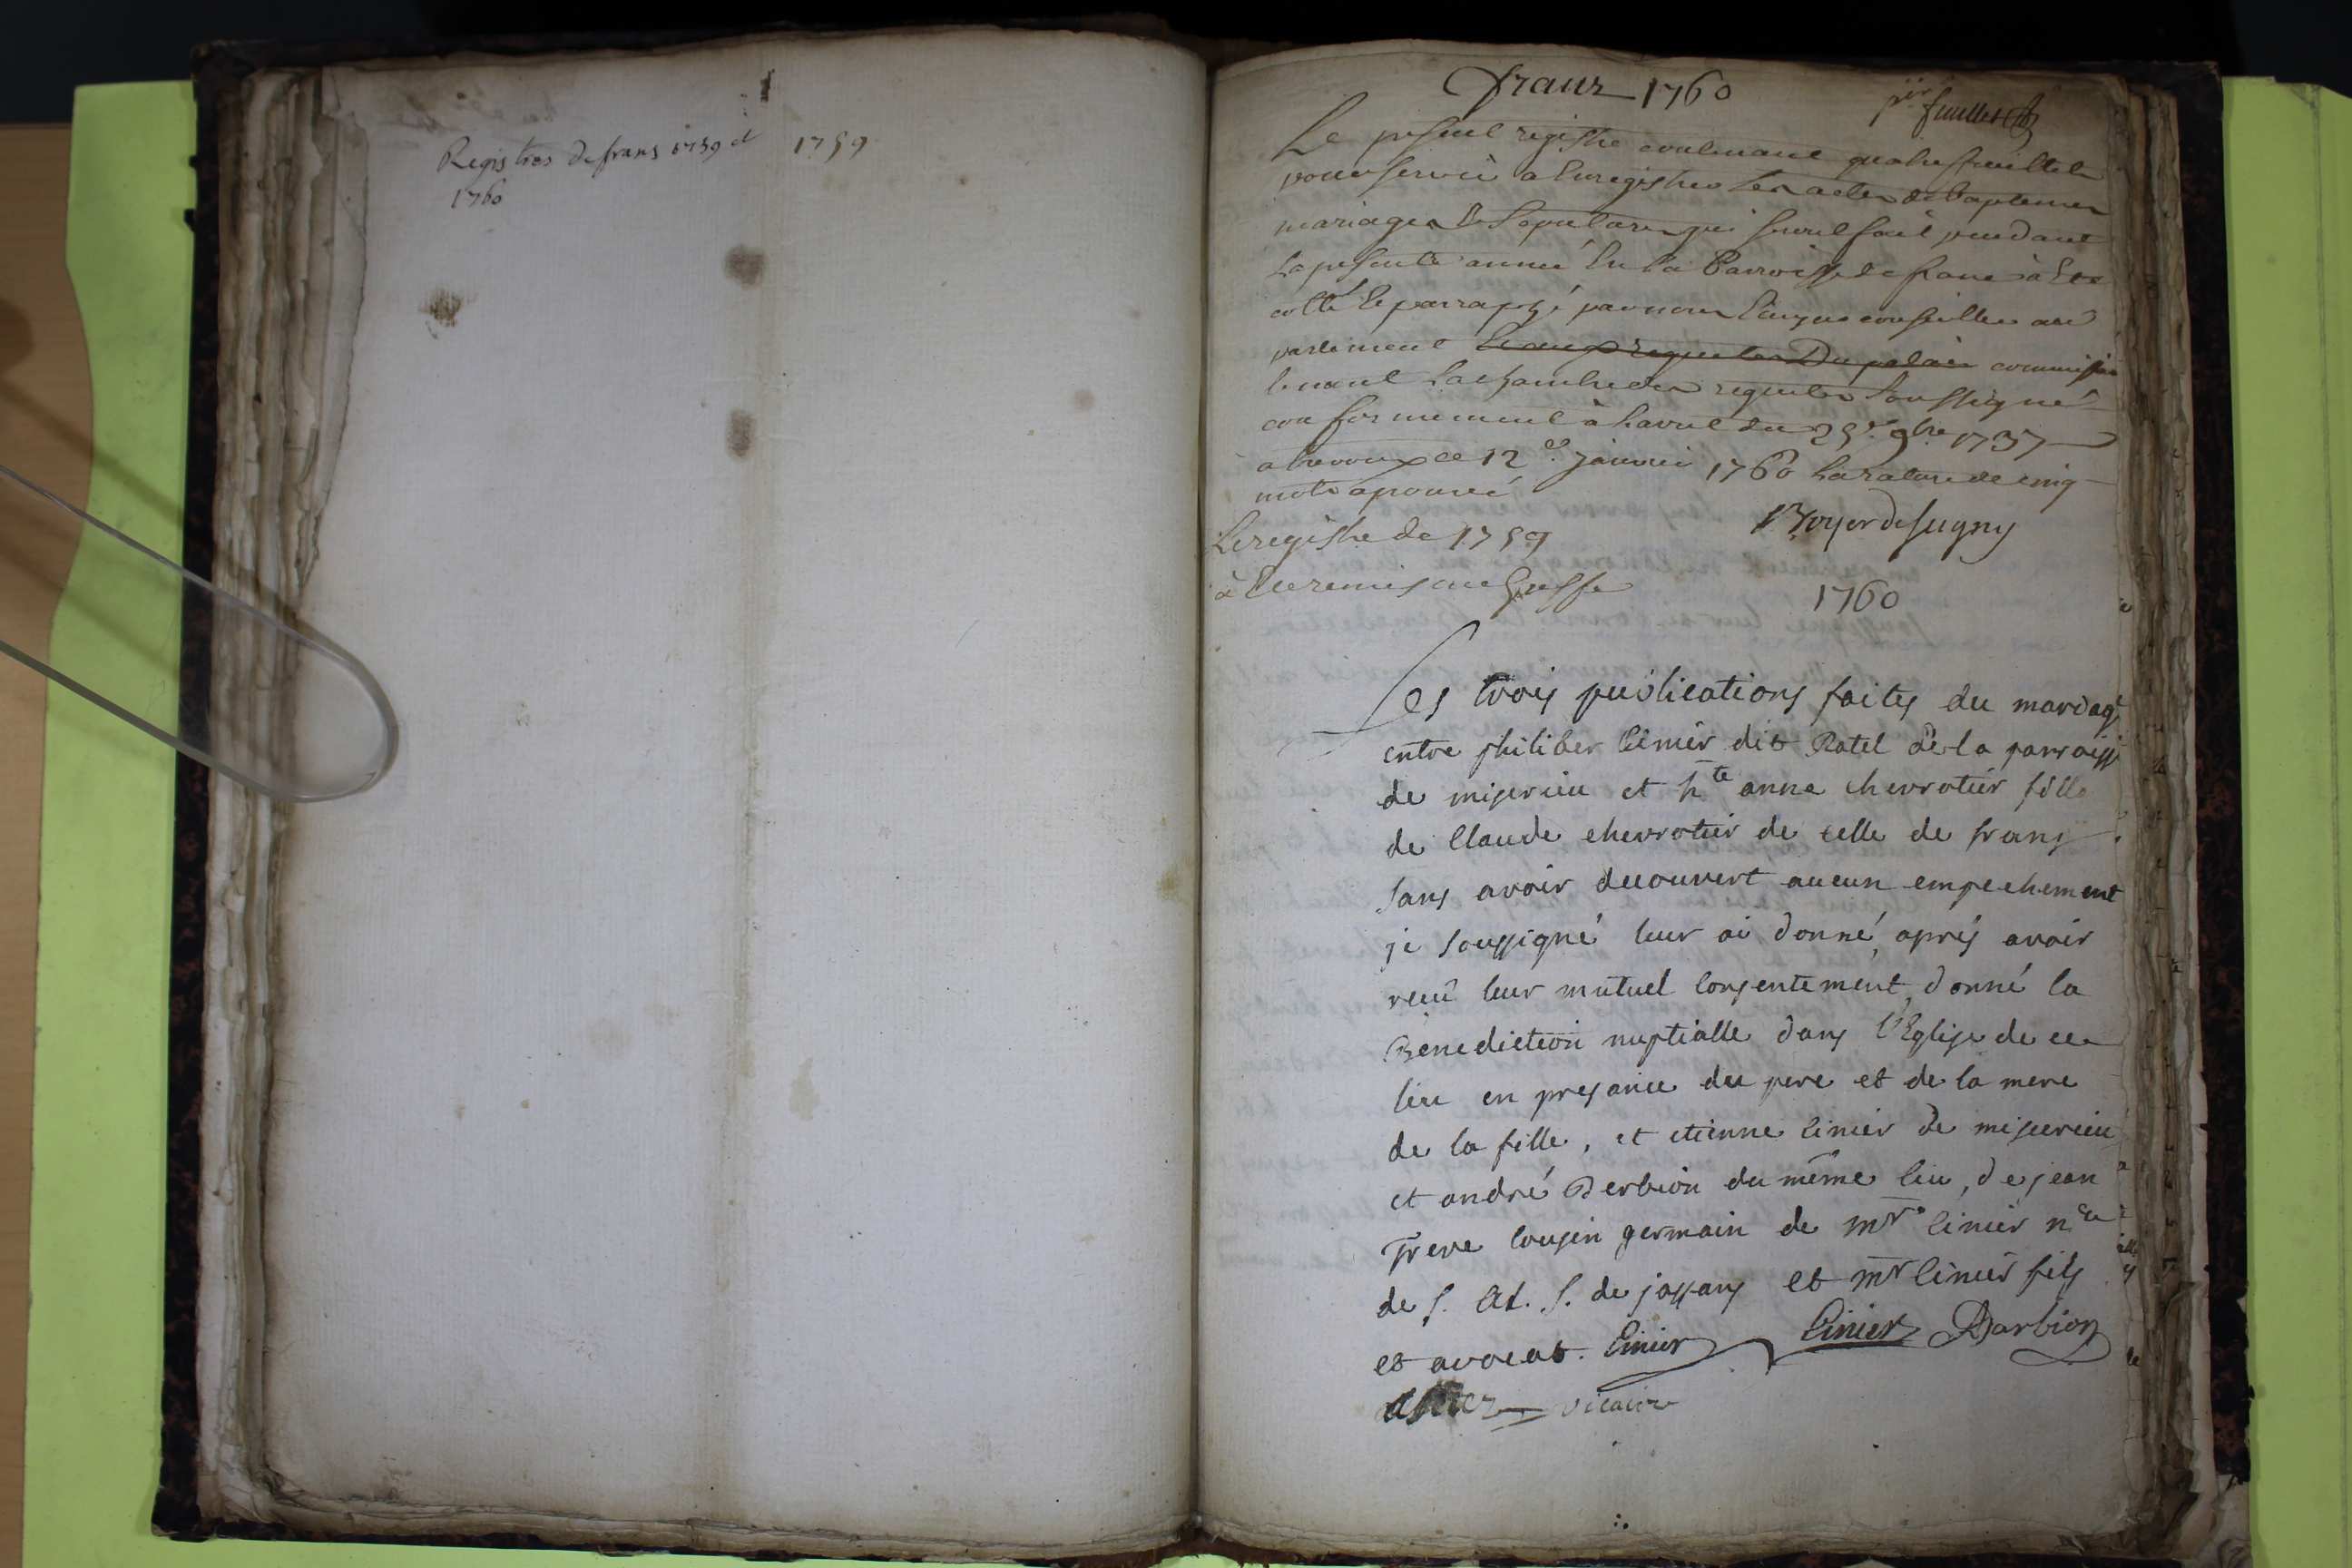 Registres de frans 1759 et
1760
1759
franz 1760
p.er feuillet
Le present registre contenant quatre feuillets
pour servir a Enregistrer les actes de Baptemes
mariages & Sepultures qui seront fait pendant
la presente année En la Parroisse de frans à Ete
cotté & parraphé par nous conseiller au
parlement & aux requetes Du palais commissaire
tenant la chambre des requetes Soussigné
conformement à l'arret du 25.e 9bre 1737
a trevoux ce 12.e janvier 1760 la rature de cinq
mots aprouvé
Le registre de 1759
à Ete remis au Greffe
1760
Les trois publications faites du mariage
entre philiber Cinier dit Ratel de la parroisse
de miserieu et h.te anne chevrotier fille
de Claude chevrotier de celle de frans
sans avoir decouvert aucun empechement
je soussigné leur ai donné après avoir
recu leur mutuel consentement donné la
Benediction nuptialle dans l'Eglise de ce
lieu en presance du pere et de la mere
de la fille, et etienne Cinier de miserieu
et andré Derbion du même lieu, de jean
frere cousin germain de mr Cinier
de S. At. S. de jassans et mr Cinier fils
et avocat. Cinier Cinier Darbion
vicaire